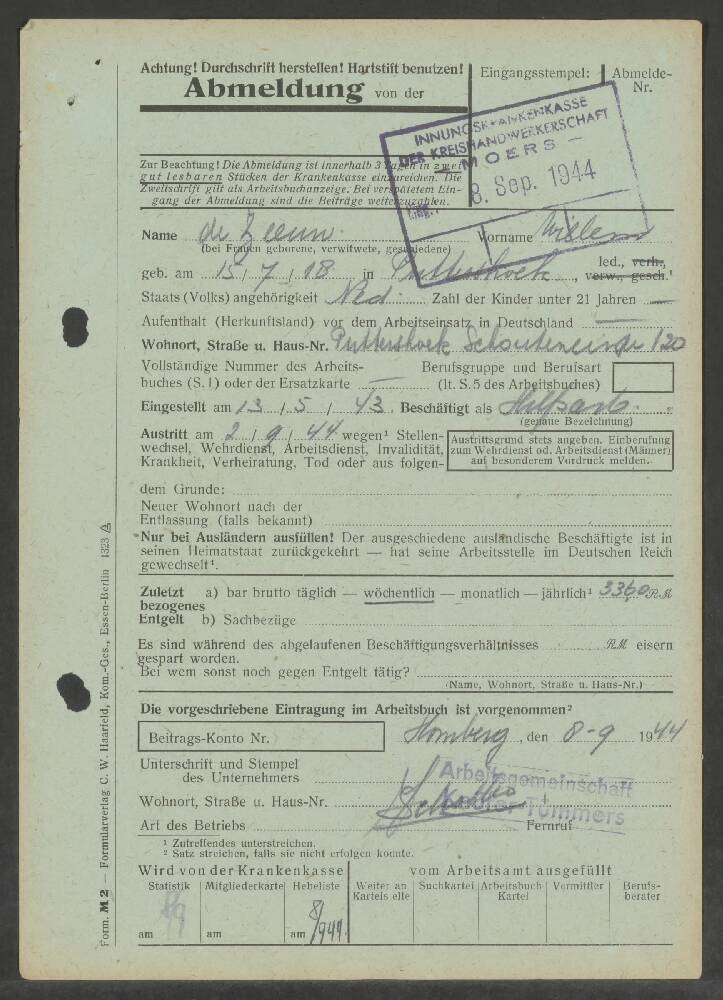 Achtung! Durchschrift herstellen! Hartstift benutzen!
Abmeldung von der
Eingangsstempel:
Abmelde-Nr.
INNUNGSKRANKENKASSE
DER KREISHANDWERKERSCHAFT
— MOERS —
8. Sep. 1944
Zur Beachtung! Die Abmeldung ist innerhalb 3 Tagen in zwei
gut lesbaren Stücken der Krankenkasse einzureichen. Die
Zweitschrift gilt als Arbeitsbuchanzeige. Bei verspätetem Ein-
gang der Abmeldung sind die Beiträge weiterzuzahlen.
Name de Zeeuw Vorname Willem
(bei Frauen geborene, verwitwete, geschiedene)
geb. am 15 / 7 / 18 in Puttershoek, led., verh., verw., gesch.¹
Staats (Volks) angehörigkeit Ned. Zahl der Kinder unter 21 Jahren —
Aufenthalt (Herkunftsland) vor dem Arbeitseinsatz in Deutschland —
Wohnort, Straße u. Haus-Nr. Puttershoek 120
Vollständige Nummer des Arbeits-
buches (S. 1) oder der Ersatzkarte —
Berufsgruppe und Berufsart
(lt. S. 5 des Arbeitsbuches)
Eingestellt am 13 / 5 / 43. Beschäftigt als Hilfsarb.
(genaue Bezeichnung)
Austritt am 2 / 9 / 44 wegen¹ Stellen-
wechsel, Wehrdienst, Arbeitsdienst, Invalidität,
Krankheit, Verheiratung, Tod oder aus folgen-
Austrittsgrund stets angeben. Einberufung
zum Wehrdienst od. Arbeitsdienst (Männer)
auf besonderem Vordruck melden.
dem Grunde:
Neuer Wohnort nach der
Entlassung (falls bekannt)
Nur bei Ausländern ausfüllen! Der ausgeschiedene ausländische Beschäftigte ist in
seinen Heimatstaat zurückgekehrt — hat seine Arbeitsstelle im Deutschen Reich
gewechselt¹.
Zuletzt a) bar brutto täglich — wöchentlich — monatlich — jährlich¹ 3360 RM
bezogenes
Entgelt b) Sachbezüge
Es sind während des abgelaufenen Beschäftigungsverhältnisses RM eisern
gespart worden.
Bei wem sonst noch gegen Entgelt tätig?
(Name, Wohnort, Straße u. Haus-Nr.)
Die vorgeschriebene Eintragung im Arbeitsbuch ist vorgenommen²
Beitrags-Konto Nr.
Homberg, den 8-9 1944
Unterschrift und Stempel
des Unternehmers
Arbeitsgemeinschaft
Tömmers
Wohnort, Straße u. Haus-Nr.
Art des Betriebs Fernruf
¹ Zutreffendes unterstreichen.
² Satz streichen, falls sie nicht erfolgen konnte.
Wird von der Krankenkasse vom Arbeitsamt ausgefüllt
Statistik Mitgliederkarte Hebeliste Weiter an Kartelstelle Suchkartei Arbeitsbuch-Kartei Vermittler Berufs-berater
8/9
am am am 8/9 44.
Form. M 2 — Formularverlag C. W. Haarfeld, Kom.-Ges., Essen-Berlin 1323 A